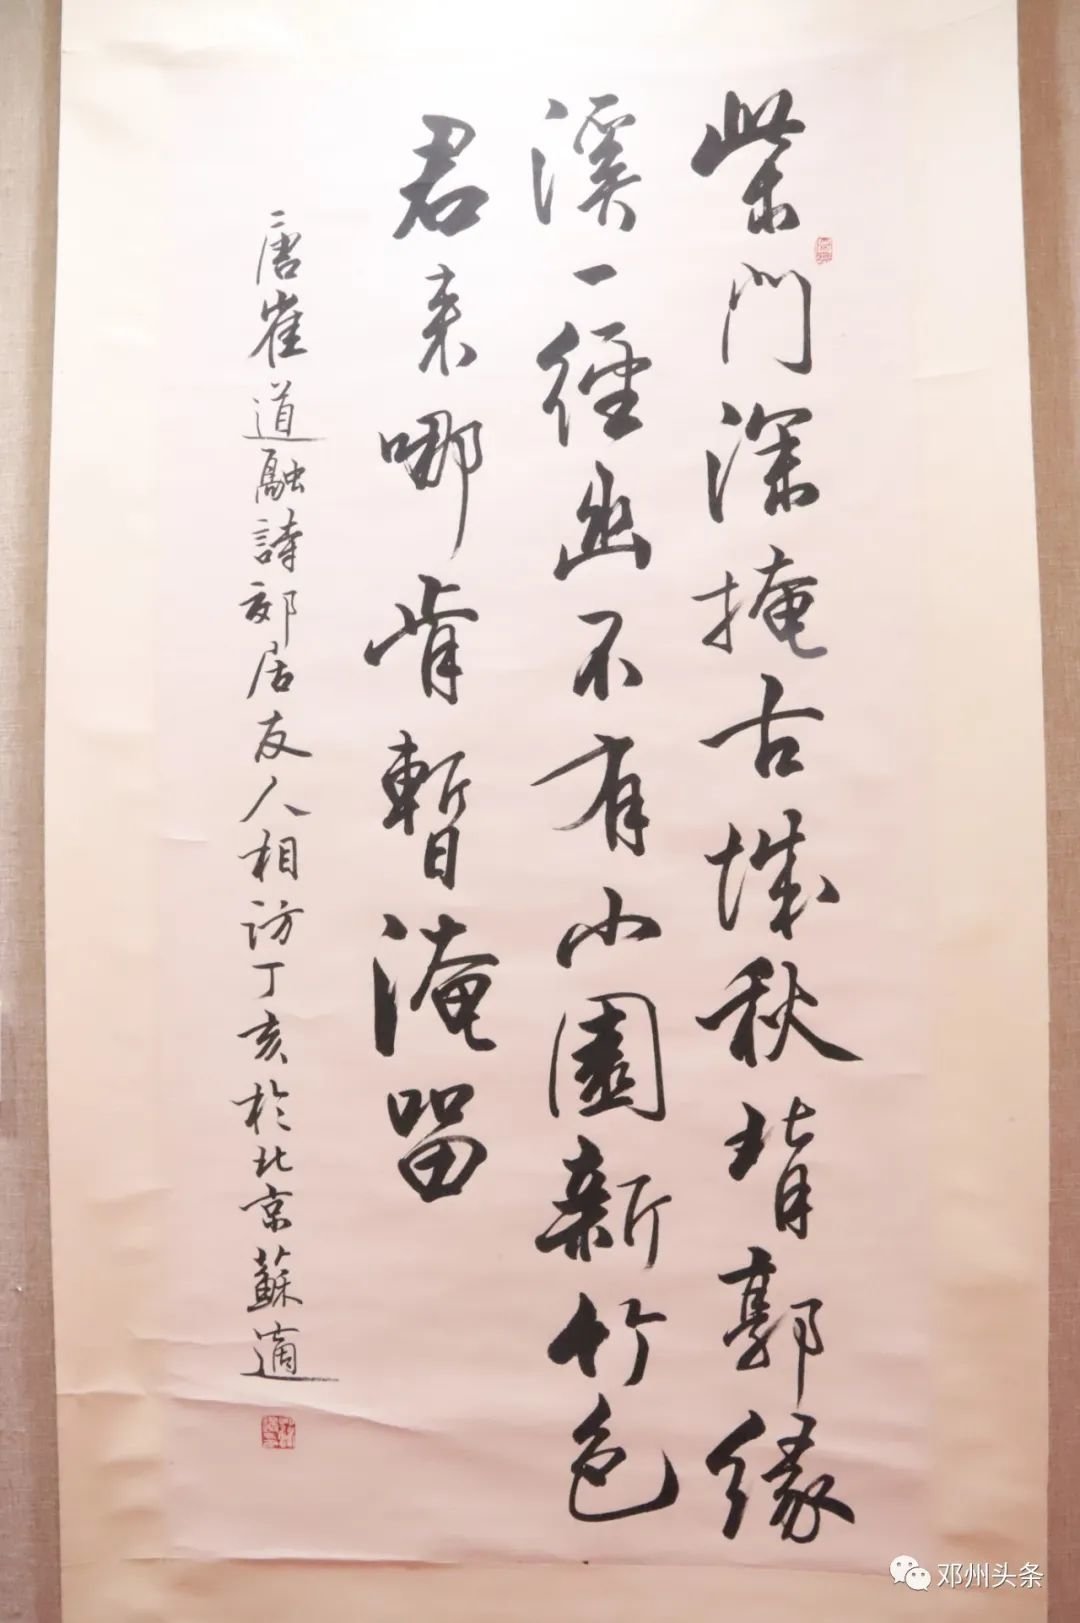 柴門深掩古城秋背郭緣
溪一徑幽不有小園新竹色
君来哪肯暫淹留
唐崔道融詩郊居友人相访丁亥於北京蘇適
邓州头条